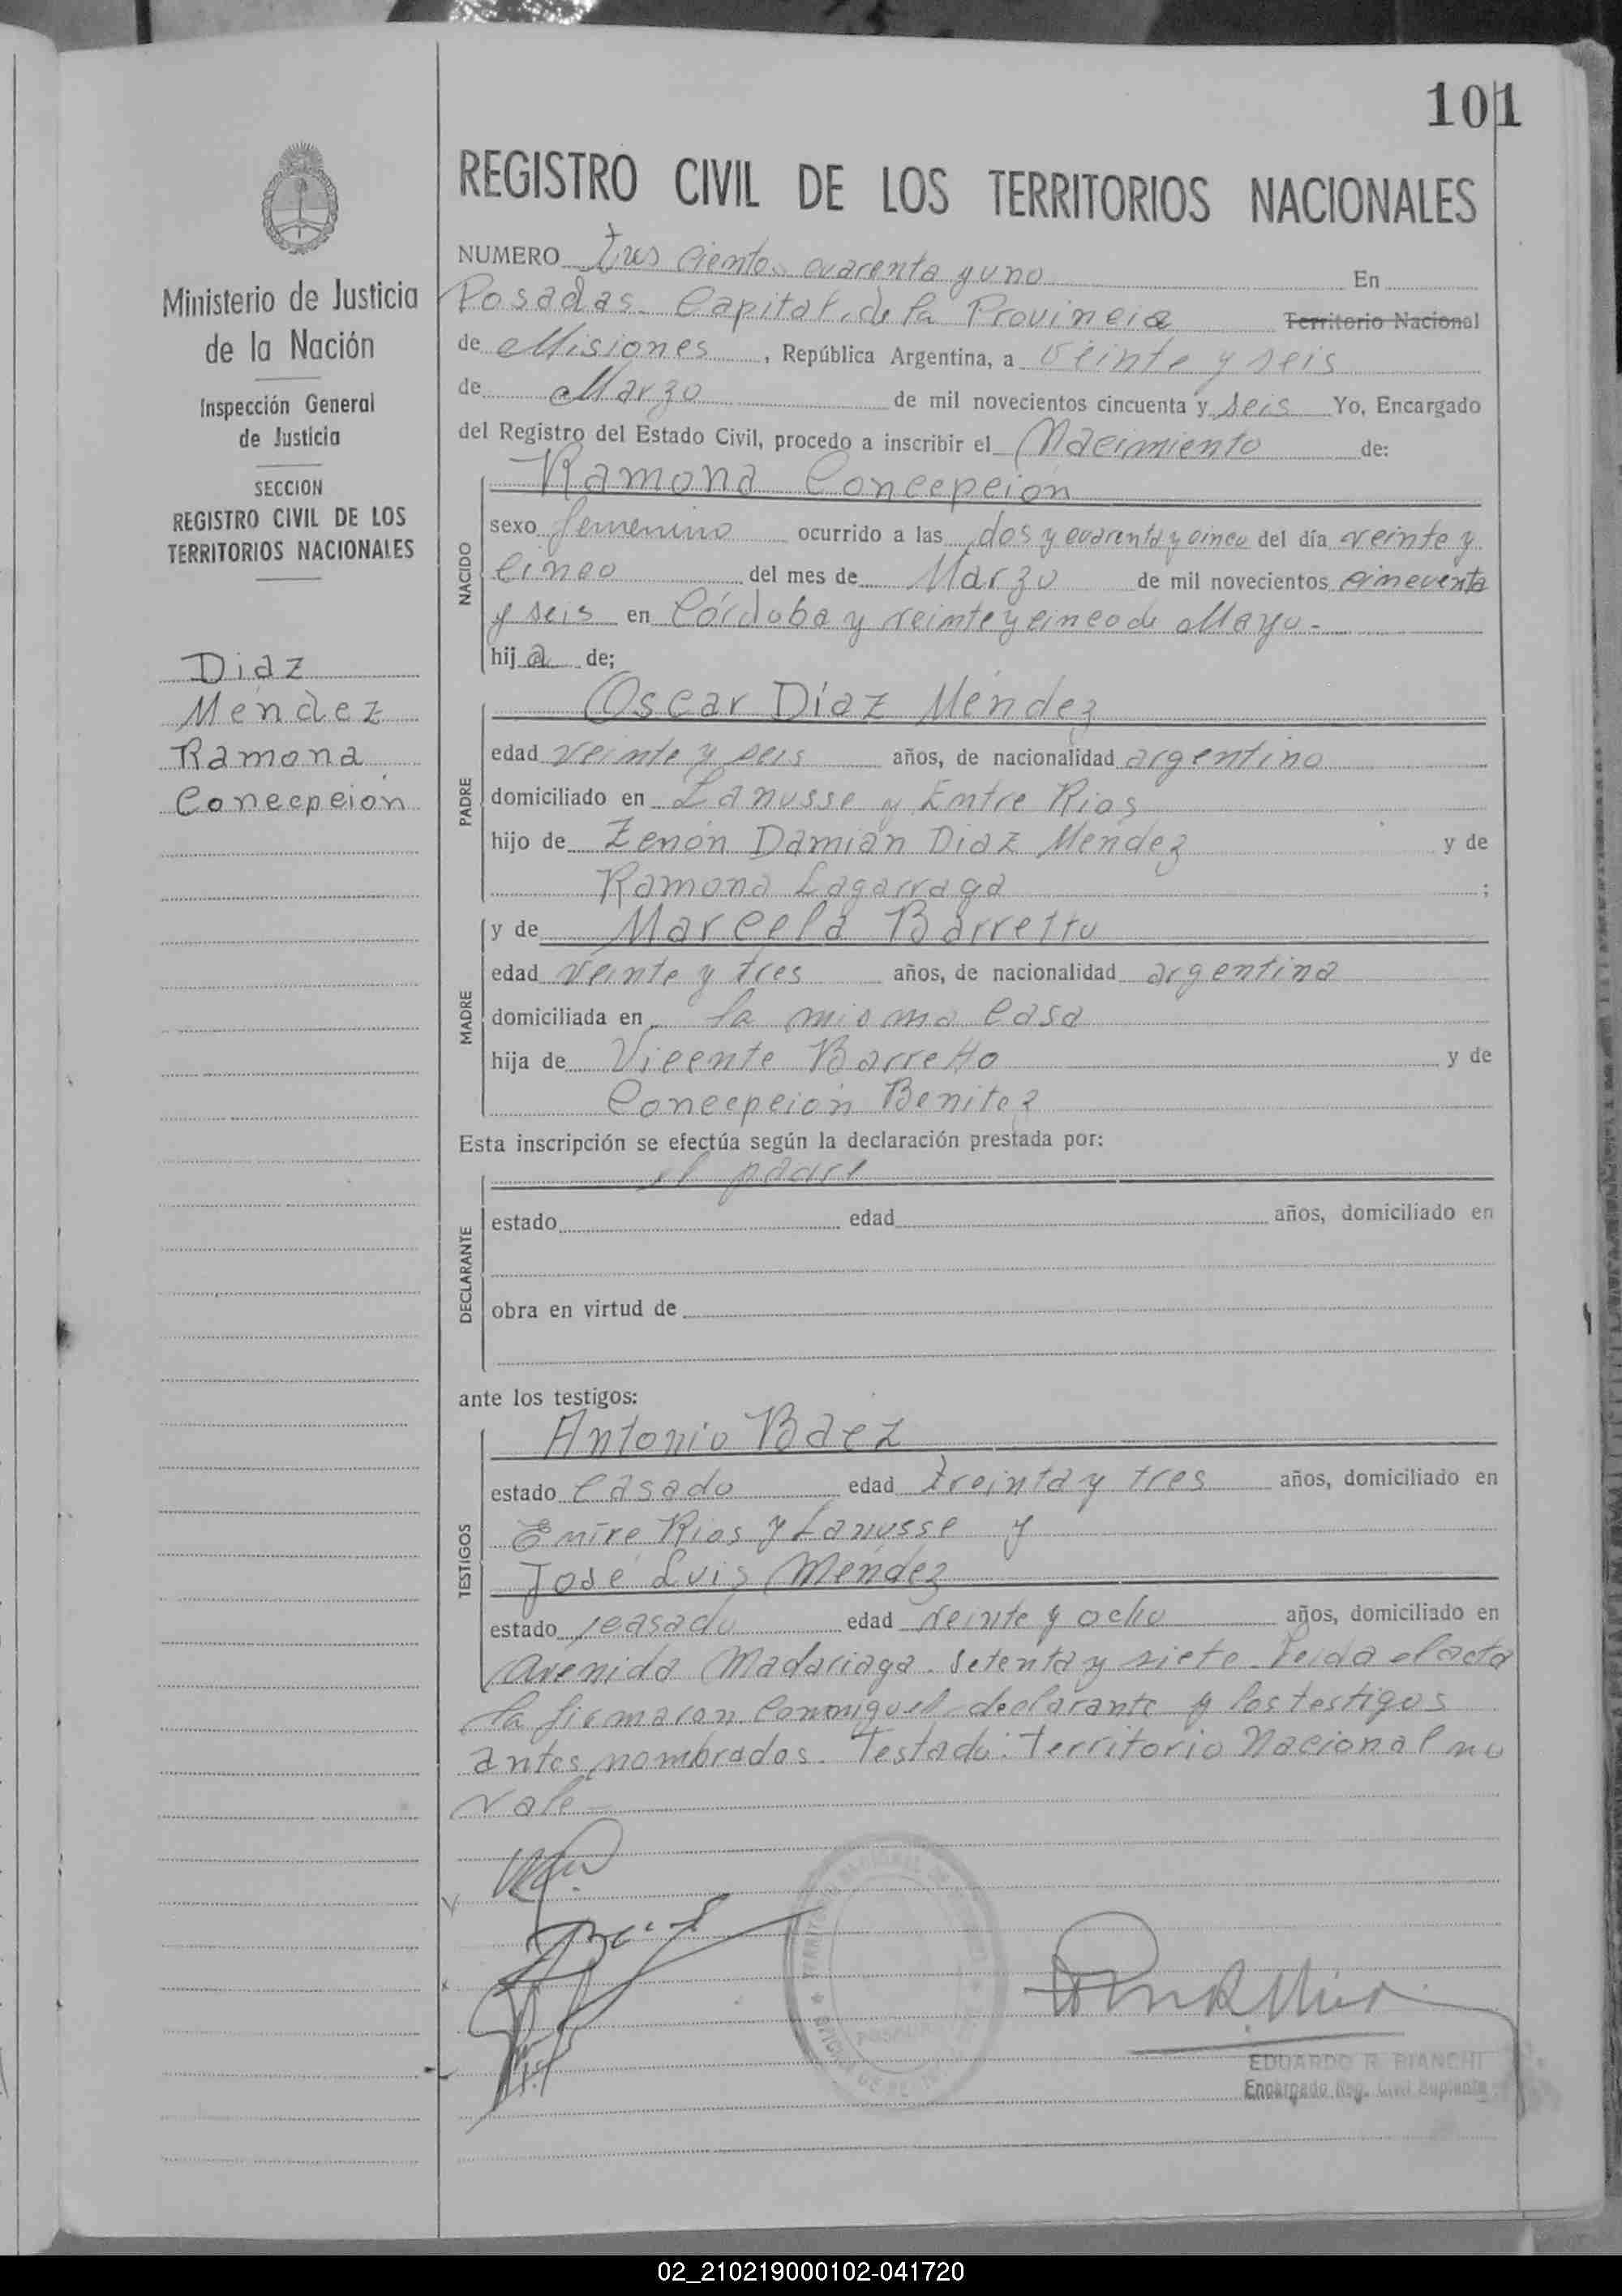 101
REGISTRO CIVIL DE LOS TERRITORIOS NACIONALES
Ministerio de Justicia
de la Nación
Inspección General
de Justicia
SECCION
REGISTRO CIVIL DE LOS
TERRITORIOS NACIONALES
Diaz
Méndez
Ramona
Concepción
NUMERO tres cientos cuarenta y uno En
Posadas Capital de la Provincia Territorio Nacional
de Misiones, República Argentina, a veinte y seis
de Marzo de mil novecientos cincuenta y seis Yo, Encargado
del Registro del Estado Civil, procedo a inscribir el Nacimiento de:
NACIDO
Ramona Concepción
sexo femenino ocurrido a las dos y cuarenta y cinco del día veinte y
cinco del mes de Marzo de mil novecientos cincuenta
y seis en Córdoba y veinte y cinco de Mayo.-
hija de;
PADRE
Oscar Díaz Méndez
edad veinte y seis años, de nacionalidad argentino
domiciliado en Lanusse y Entre Rios
hijo de Zenón Damián Diaz Méndez y de
Ramona Lagarraga ;
MADRE
y de Marcela Barretto
edad veinte y tres años, de nacionalidad argentina
domiciliada en la misma casa
hija de Vicente Barretto y de
Concepción Benitez
Esta inscripción se efectúa según la declaración prestada por:
DECLARANTE
el padre
estado edad años, domiciliado en
obra en virtud de
ante los testigos:
TESTIGOS
Antonio Baez
estado casado edad treinta y tres años, domiciliado en
Entre Rios y Lanusse y
José Luis Méndez
estado casado edad veinte y ocho años, domiciliado en
Avenida Madariaga setenta y siete. Leida el acta
la firmaron conmigo el declarante y los testigos
antes nombrados. Testado: Territorio Nacional no
vale=
POSADAS
EDUARDO R. BIANCHI
Encargado Reg. Civil Suplente
02_210219000102-041720